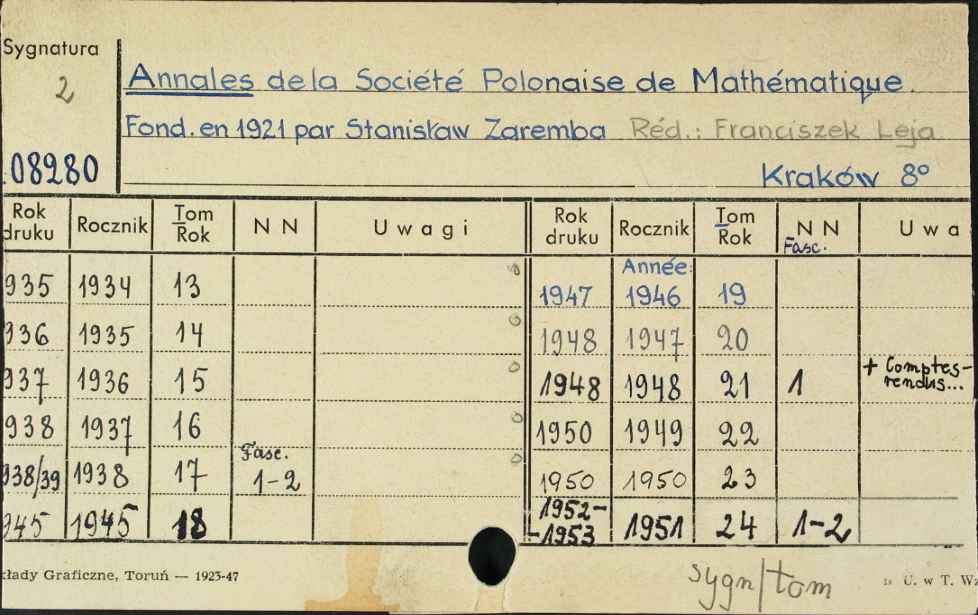 Sygnatura
2
08980
Annales de la Société Polonaise de Mathématique.
Fond. en 1921 par Stanisław Zaremba Réd.: Franciszek Leja
Kraków 8°
Rok druku Rocznik Tom Rok NN Uwagi
935 1934 13
936 1935 14
937 1936 15
938 1937 16
938/39 1938 17 Fasc. 1-2
945 1945 18
Rok druku Rocznik Tom Rok NN Fasc. Uwa
Année:
1947 1946 19
1948 1947 20
1948 1948 21 1 + Comptes-rendus...
1950 1949 22
1950 1950 23
1952-
-1953 1951 24 1-2
kłady Graficzne, Toruń — 1923-47
sygn/tom
U. w T. Wz